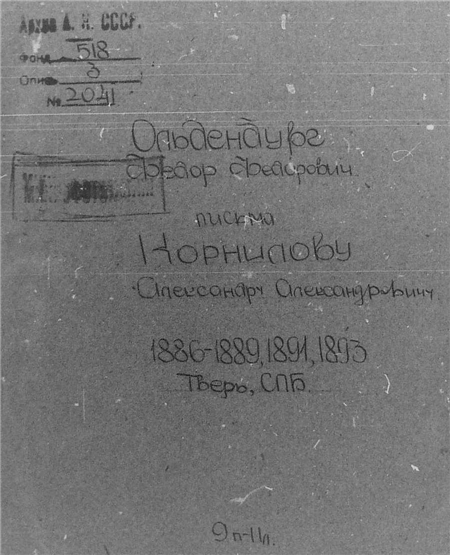 Архив А. Н. СССР.
Фонд 518
Опись 3
№ 2041
Ольденбург
Федор Федорович
письма
Корнилову
Александру Александровичу
1886-1889, 1891, 1893
Тверь, СПБ.
9п-11л.